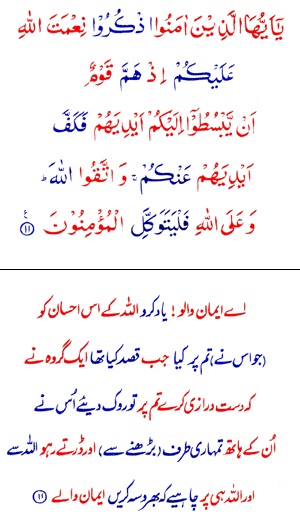 يٰٓاَيُّهَا الَّذِيْنَ اٰمَنُوا اذْكُرُوْا نِعْمَتَ اللّٰهِ
عَلَيْكُمْ اِذْ هَمَّ قَوْمٌ
اَنْ يَّبْسُطُوْۤا اِلَيْكُمْ اَيْدِيَهُمْ فَكَفَّ
اَيْدِيَهُمْ عَنْكُمْ ۚ وَ اتَّقُوا اللّٰهَ ؕ
وَ عَلَى اللّٰهِ فَلْيَتَوَكَّلِ الْمُؤْمِنُوْنَ ﴿۱۱﴾ ع
اے ایمان والو! یاد کرو اللہ کے اس احسان کو
(جو اس نے) تم پر کیا جب قصد کیا تھا ایک گروہ نے
کہ دست درازی کرے تم پر تو روک دیئے اُس نے
اُن کے ہاتھ تمہاری طرف (بڑھنے سے) اور ڈرتے رہو اللہ سے
اور اللہ ہی پر چاہیے کہ بھروسہ کریں ایمان والے ﴿۱۱﴾